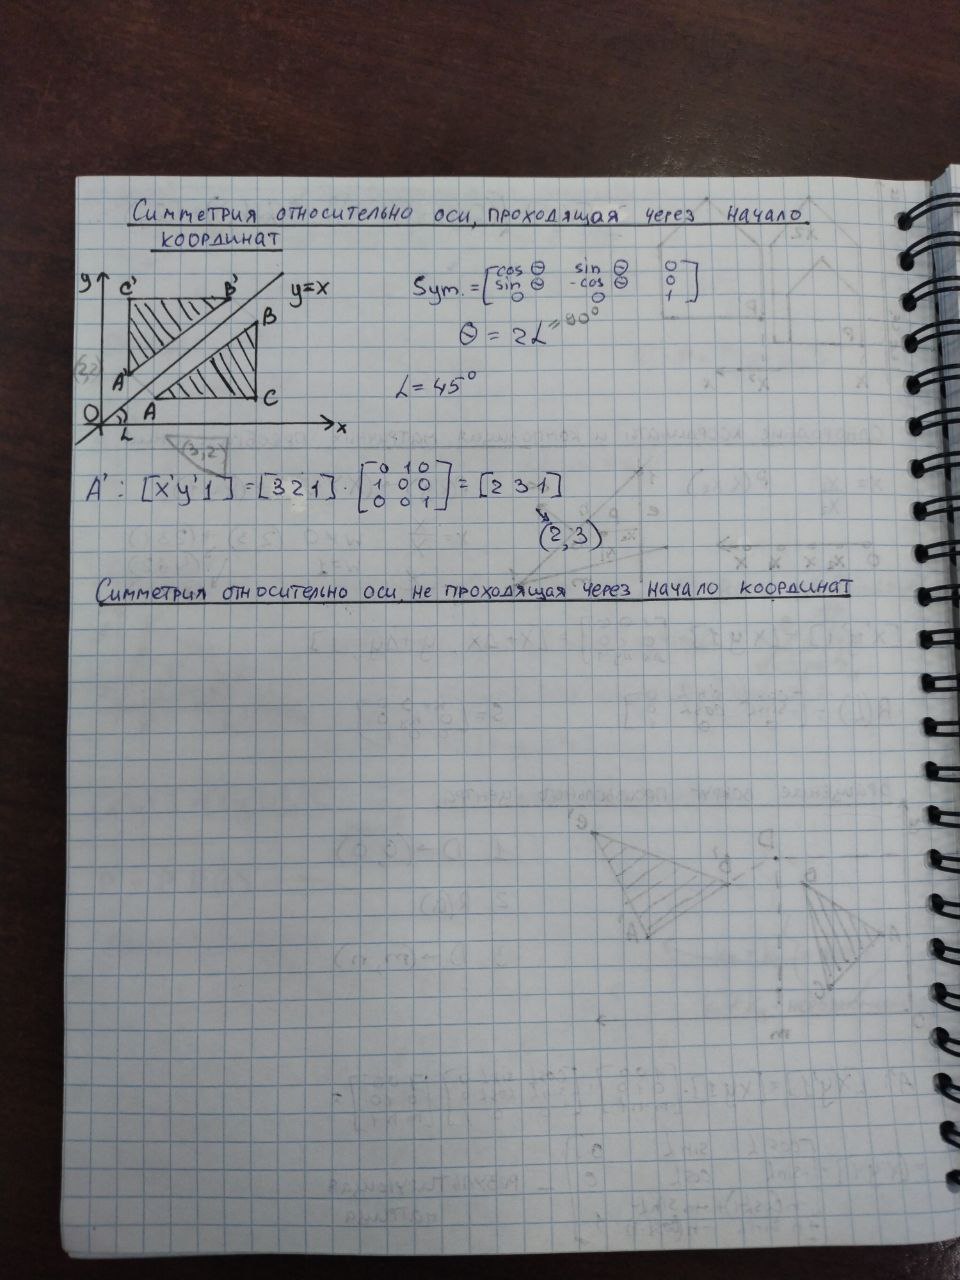 Симметрия относительно оси, проходящая через начало
координат
y
C' B' y=x
Sym. = [cos Θ sin Θ 0
sin Θ -cos Θ 0
0 0 1]
B
Θ = 2L =90°
A'
L = 45°
A C
O L x
(3,2)
A' : [x' y' 1] = [3 2 1] · [0 1 0
1 0 0
0 0 1] = [2 3 1]
(2,3)
Симметрия относительно оси, не проходящая через начало координат